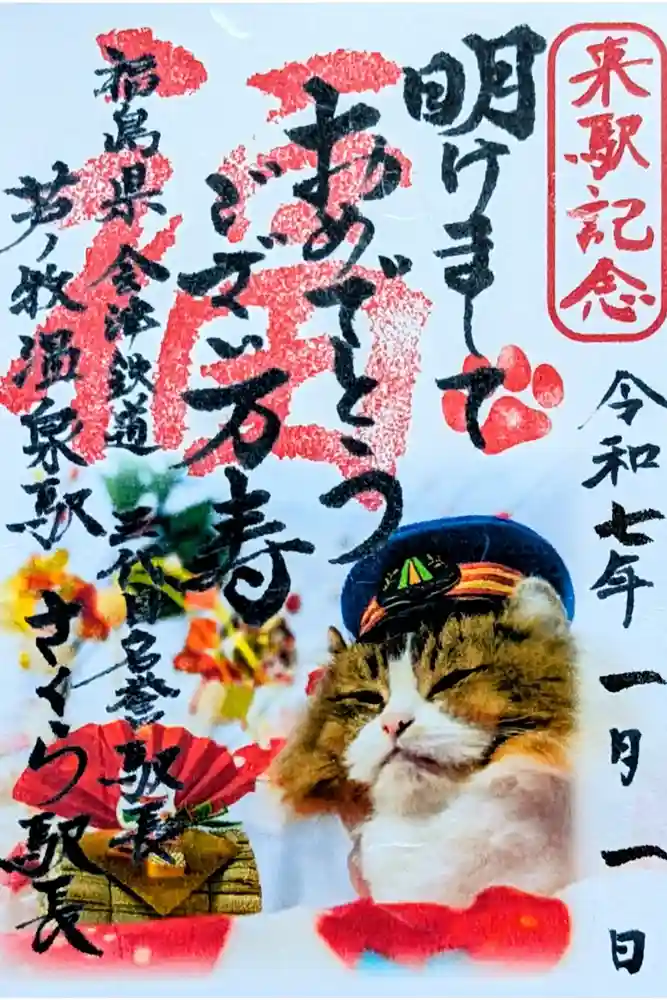 来駅記念
令和七年一月一日
明けまして
おめでとう
ございます
福
寿
福島県会津鉄道
芦ノ牧温泉駅
三代目名誉駅長
さくら駅長